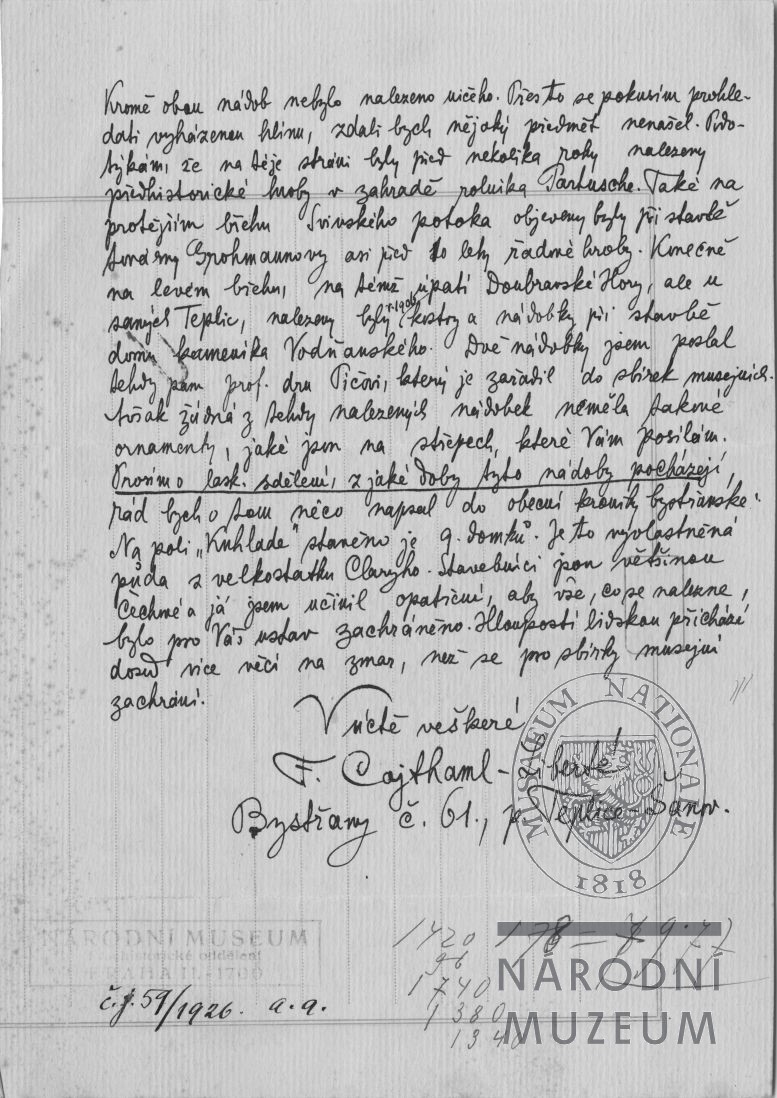 Kromě obou nádob nebylo nalezeno ničeho. Přes to se pokusím prohle-
dati vyházenou hlínu, zdali bych nějaký předmět nenašel. Podo-
týkám, že na téže stráni byly před několika roky nalezeny
předhistorické hroby v zahradě rolníka Partusche. Také na
protějším břehu Svivského potoka objeveny byly při stavbě
továrny Grohmannovy asi před 10 lety řadové hroby. Konečně
na levém břehu, na témž úpatí Doubravské Hory, ale u
samých Teplic, nalezeny byly r. 1906 kostry a nádobky při stavbě
domu kameníka Vodňanského. Dvě nádobky jsem poslal
tehdy panu prof. dru Píčovi, který je zařadil do sbírek musejních.
Avšak žádná z tehdy nalezených nádobek neměla takové
ornamenty, jaké jsou na střepech, které Vám posílám.
Prosím o lask. sdělení, z jaké doby tyto nádoby pocházejí,
rád bych o tom něco napsal do obecní kroniky bystřanské.
Na poli „Kuhlade" staveno je 9. domků. Je to vyvlastněná
půda z velkostatku Claryho. Stavebníci jsou většinou
Čechové a já jsem učinil opatření, aby vše, co se nalezne,
bylo pro Váš ustav zachráněno. Hloupostí lidskou přichází
dosud více věcí na zmar, než se pro sbírky musejní
zachrání.
V úctě veškeré
F. Cajthaml-Liberté
Bystřany č. 61., p. Teplice-Šanov.
MUSAEUM NATIONALE
1818
NÁRODNÍ MUSEUM
Předhistorické oddělení
PRAHA II.-1700
č.j. 59/1926. a.a.
1420
96
1740
1380
1340
NÁRODNÍ
MUZEUM